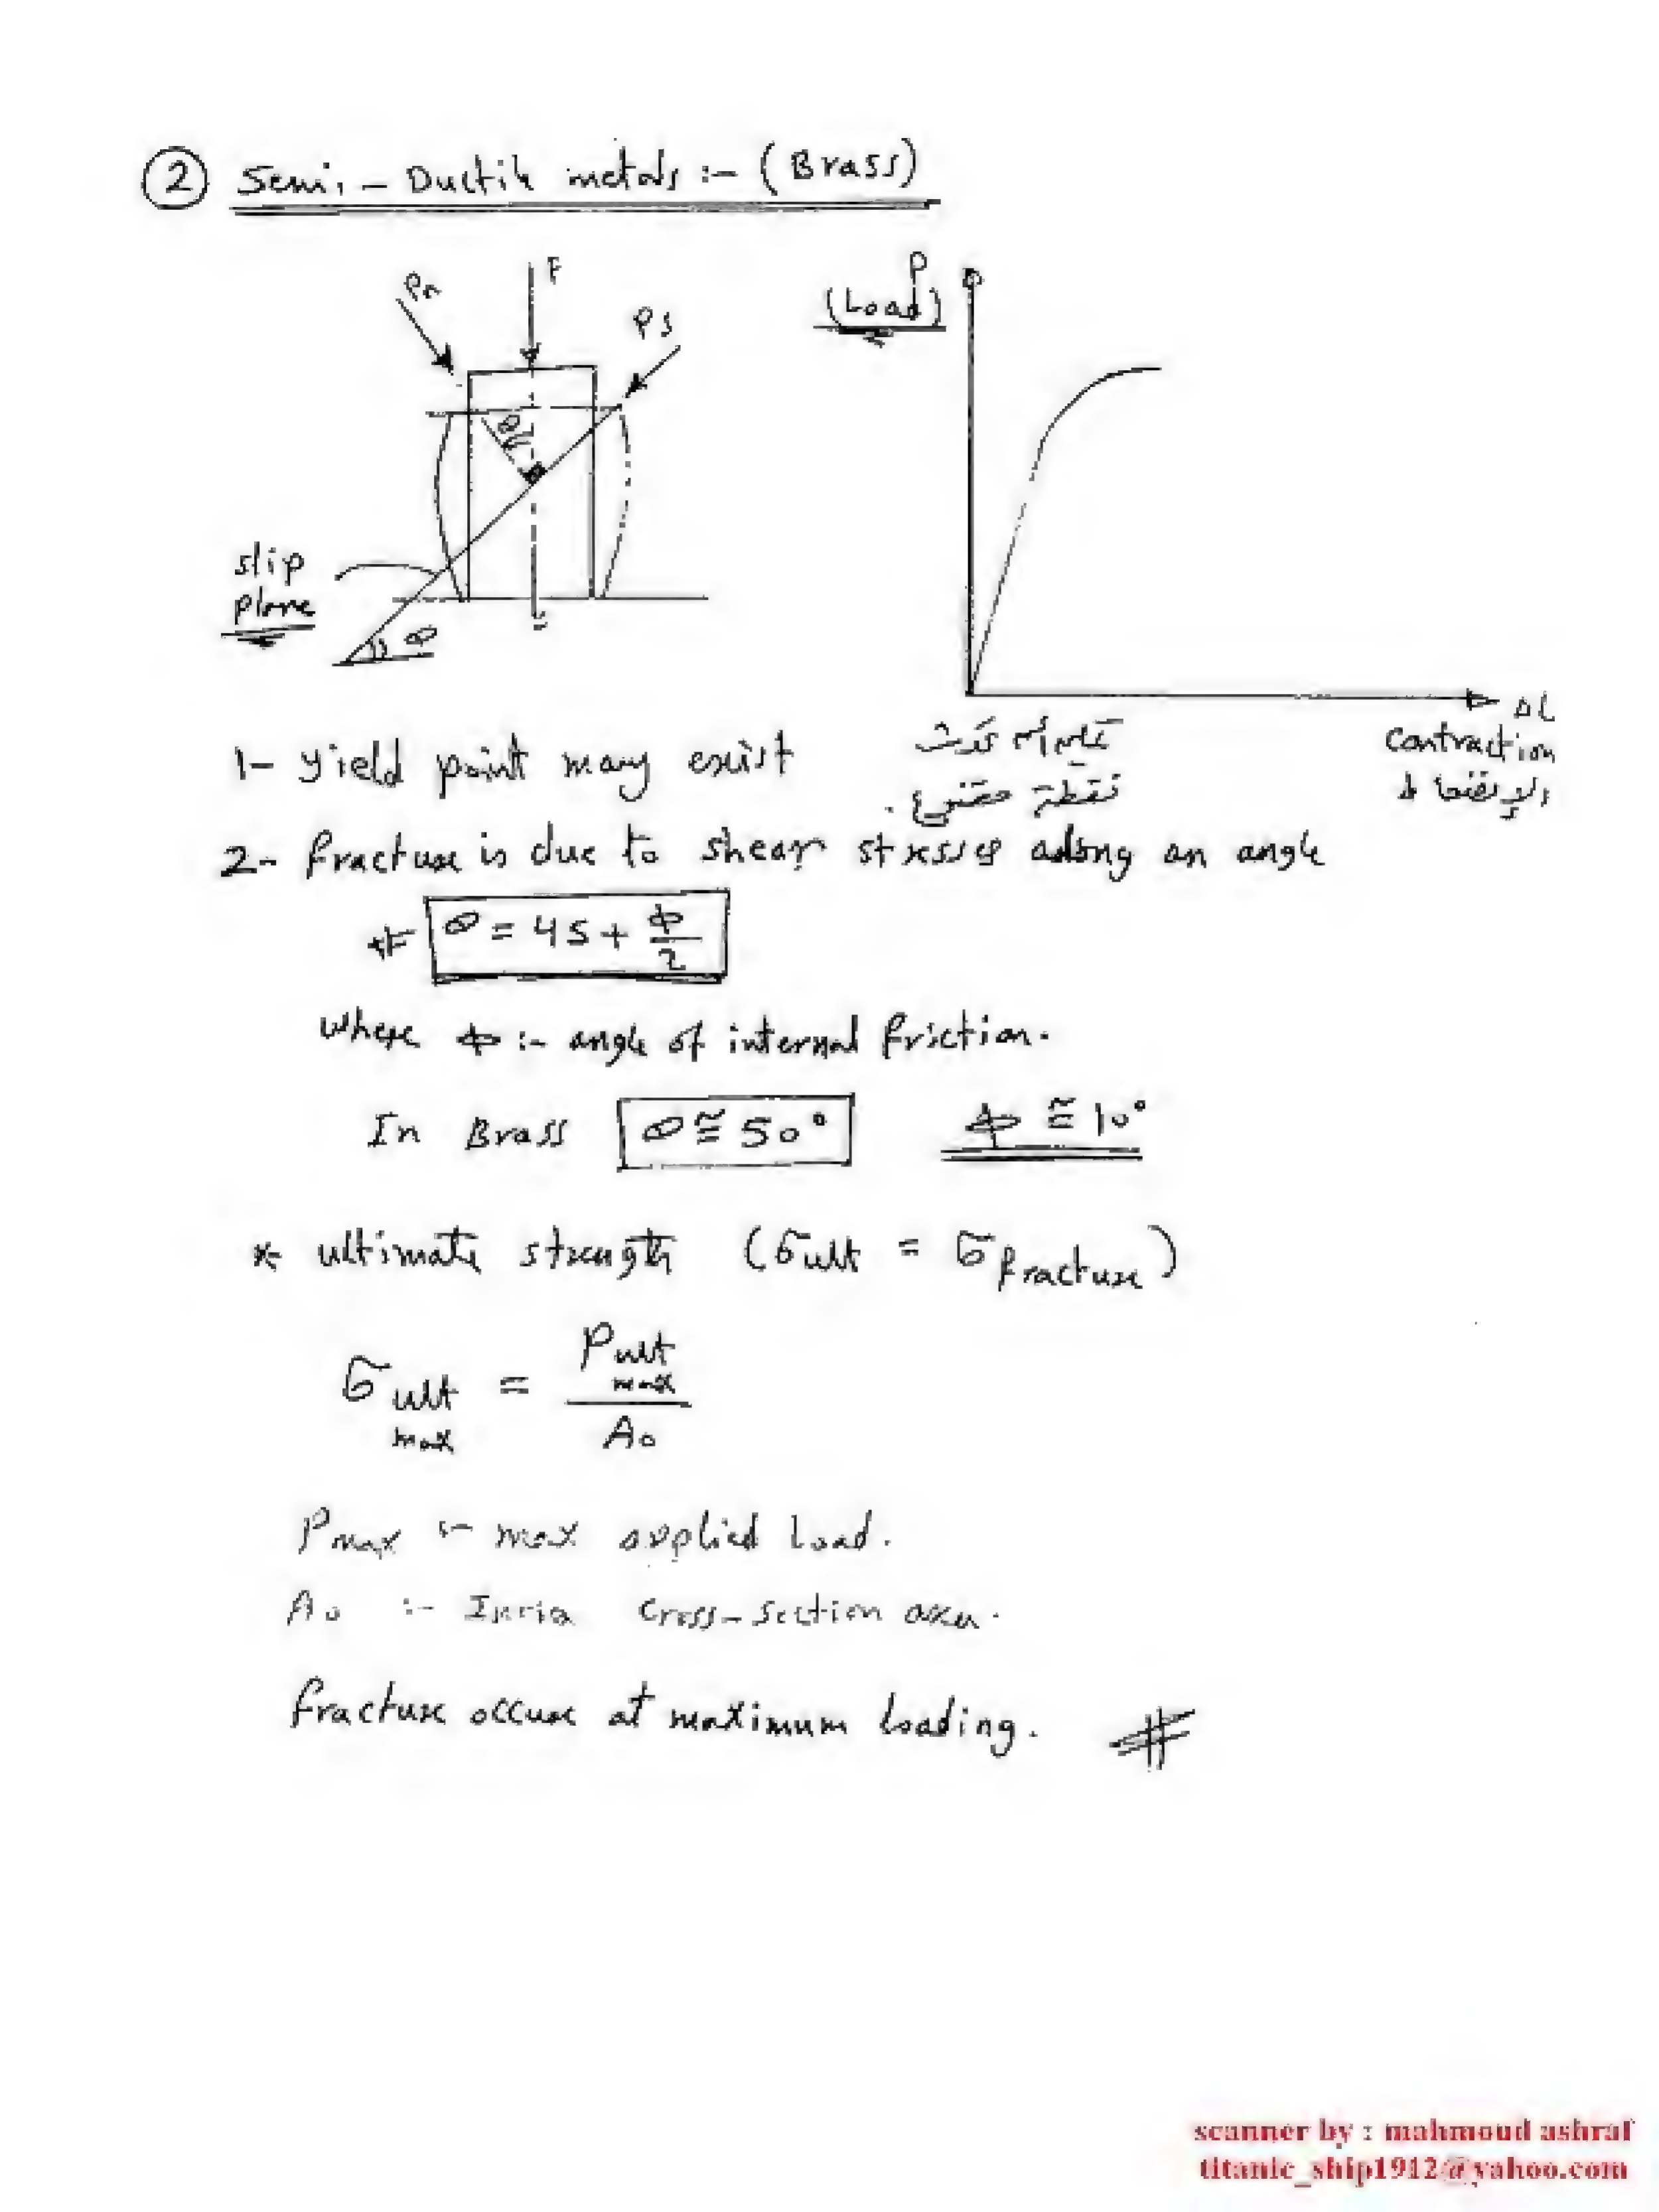 ② Semi - Ductile metals :- (Brass)
Pn
F
Ps
θ
slip
plane
θ
P
(Load)
ΔL
contraction
1- yield point may exist
نقطة خضوع .
2- fracture is due to shear stresses along an angle
# θ = 45 + φ/2
where φ :- angle of internal friction.
In Brass θ ≅ 50° φ ≅ 10°
* ultimate strength (σult = σfracture)
σult max = Pult max / A0
Pmax :- max applied load.
A0 :- cross-section area.
fracture occure at maximum loading. #
scanner by : mahmoud ashraf
titanic_ship1912@yahoo.com